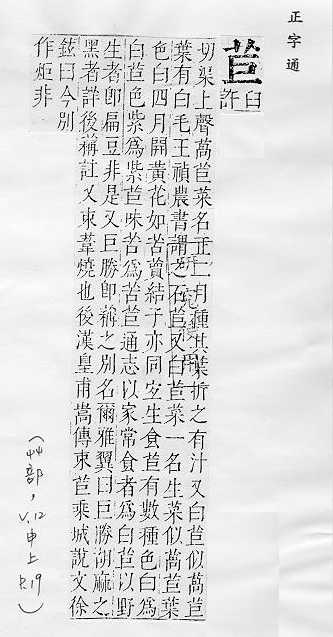 正字通
苣
臼許
切渠上聲萵苣菜名正二月種其葉折之有汁又白苣似萵苣
葉有白毛王禎農書謂之石苣又白苣菜一名生菜似萵苣葉
色白四月開黃花如苦蕒結子亦同宐生食苣有數種色白爲
白苣色紫爲紫苣味苦爲苦苣通志以家常食者爲白苣以野
生者卽扁豆非是又巨勝卽䕲之別名爾雅翼曰巨勝胡麻之
黑者詳後䕲註又束葦燒也後漢皇甫嵩傳束苣乘城說文徐
鉉曰今別
作炬非
(艸部, V.12 申上 P.19)